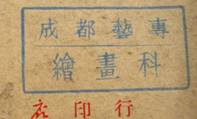 成都藝專
繪畫科
印行